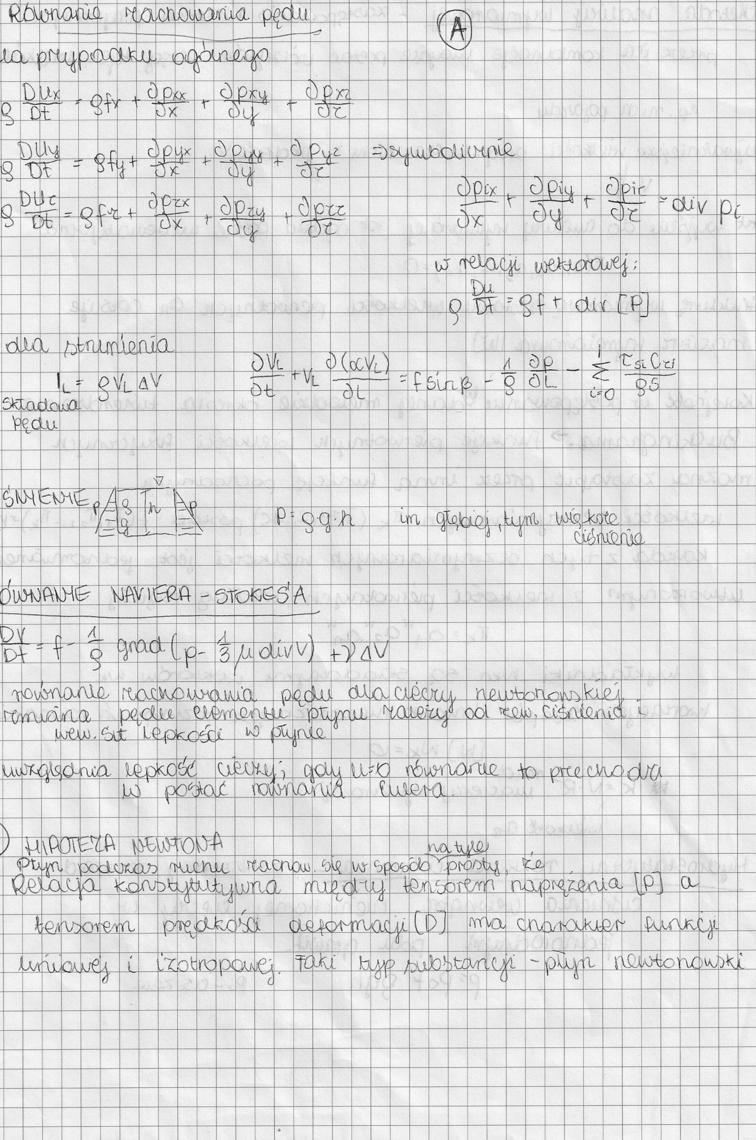 Równanie zachowania pędu
A
la przypadku ogólnego
ρ DUx/Dt = ρfx + ∂pxx/∂x + ∂pxy/∂y + ∂pxz/∂z
ρ DUy/Dt = ρfy + ∂pyx/∂x + ∂pyy/∂y + ∂pyz/∂z ⇒ symbolicznie
ρ DUz/Dt = ρfz + ∂pzx/∂x + ∂pzy/∂y + ∂pzz/∂z
∂pix/∂x + ∂piy/∂y + ∂piz/∂z = div pi
w relacji wektorowej:
ρ Du/Dt = ρf + div [P]
dla strumienia
IL = ρVL ΔV
∂VL/∂t + VL ∂(αVL)/∂L = f sinβ - 1/ρ ∂p/∂L - Σ i=0 τsi Czi/ρS
składowa
pędu
ŚNIENIE p ρ g h p
p = ρ·g·h im głębiej, tym większe
ciśnienie
ÓWNANIE NAVIERA-STOKES'A
DV/Dt = f - 1/ρ grad (p - 1/3 μ div V) + νΔV
równanie zachowania pędu dla cieczy newtonowskiej
zmiana pędu elementu płynu zależy od zew. ciśnienia i
wew. sił lepkości w płynie
uwzględnia lepkość cieczy; gdy μ=0 równanie to przechodzi
w postać równania Eulera
) HIPOTEZA NEWTONA
Płyn podczas ruchu zachow. się w sposób na tyle prosty, że
Relacja konstytutywna między tensorem naprężenia [P] a
tensorem prędkości deformacji [D] ma charakter funkcji
liniowej i izotropowej. Taki typ substancji - płyn newtonowski